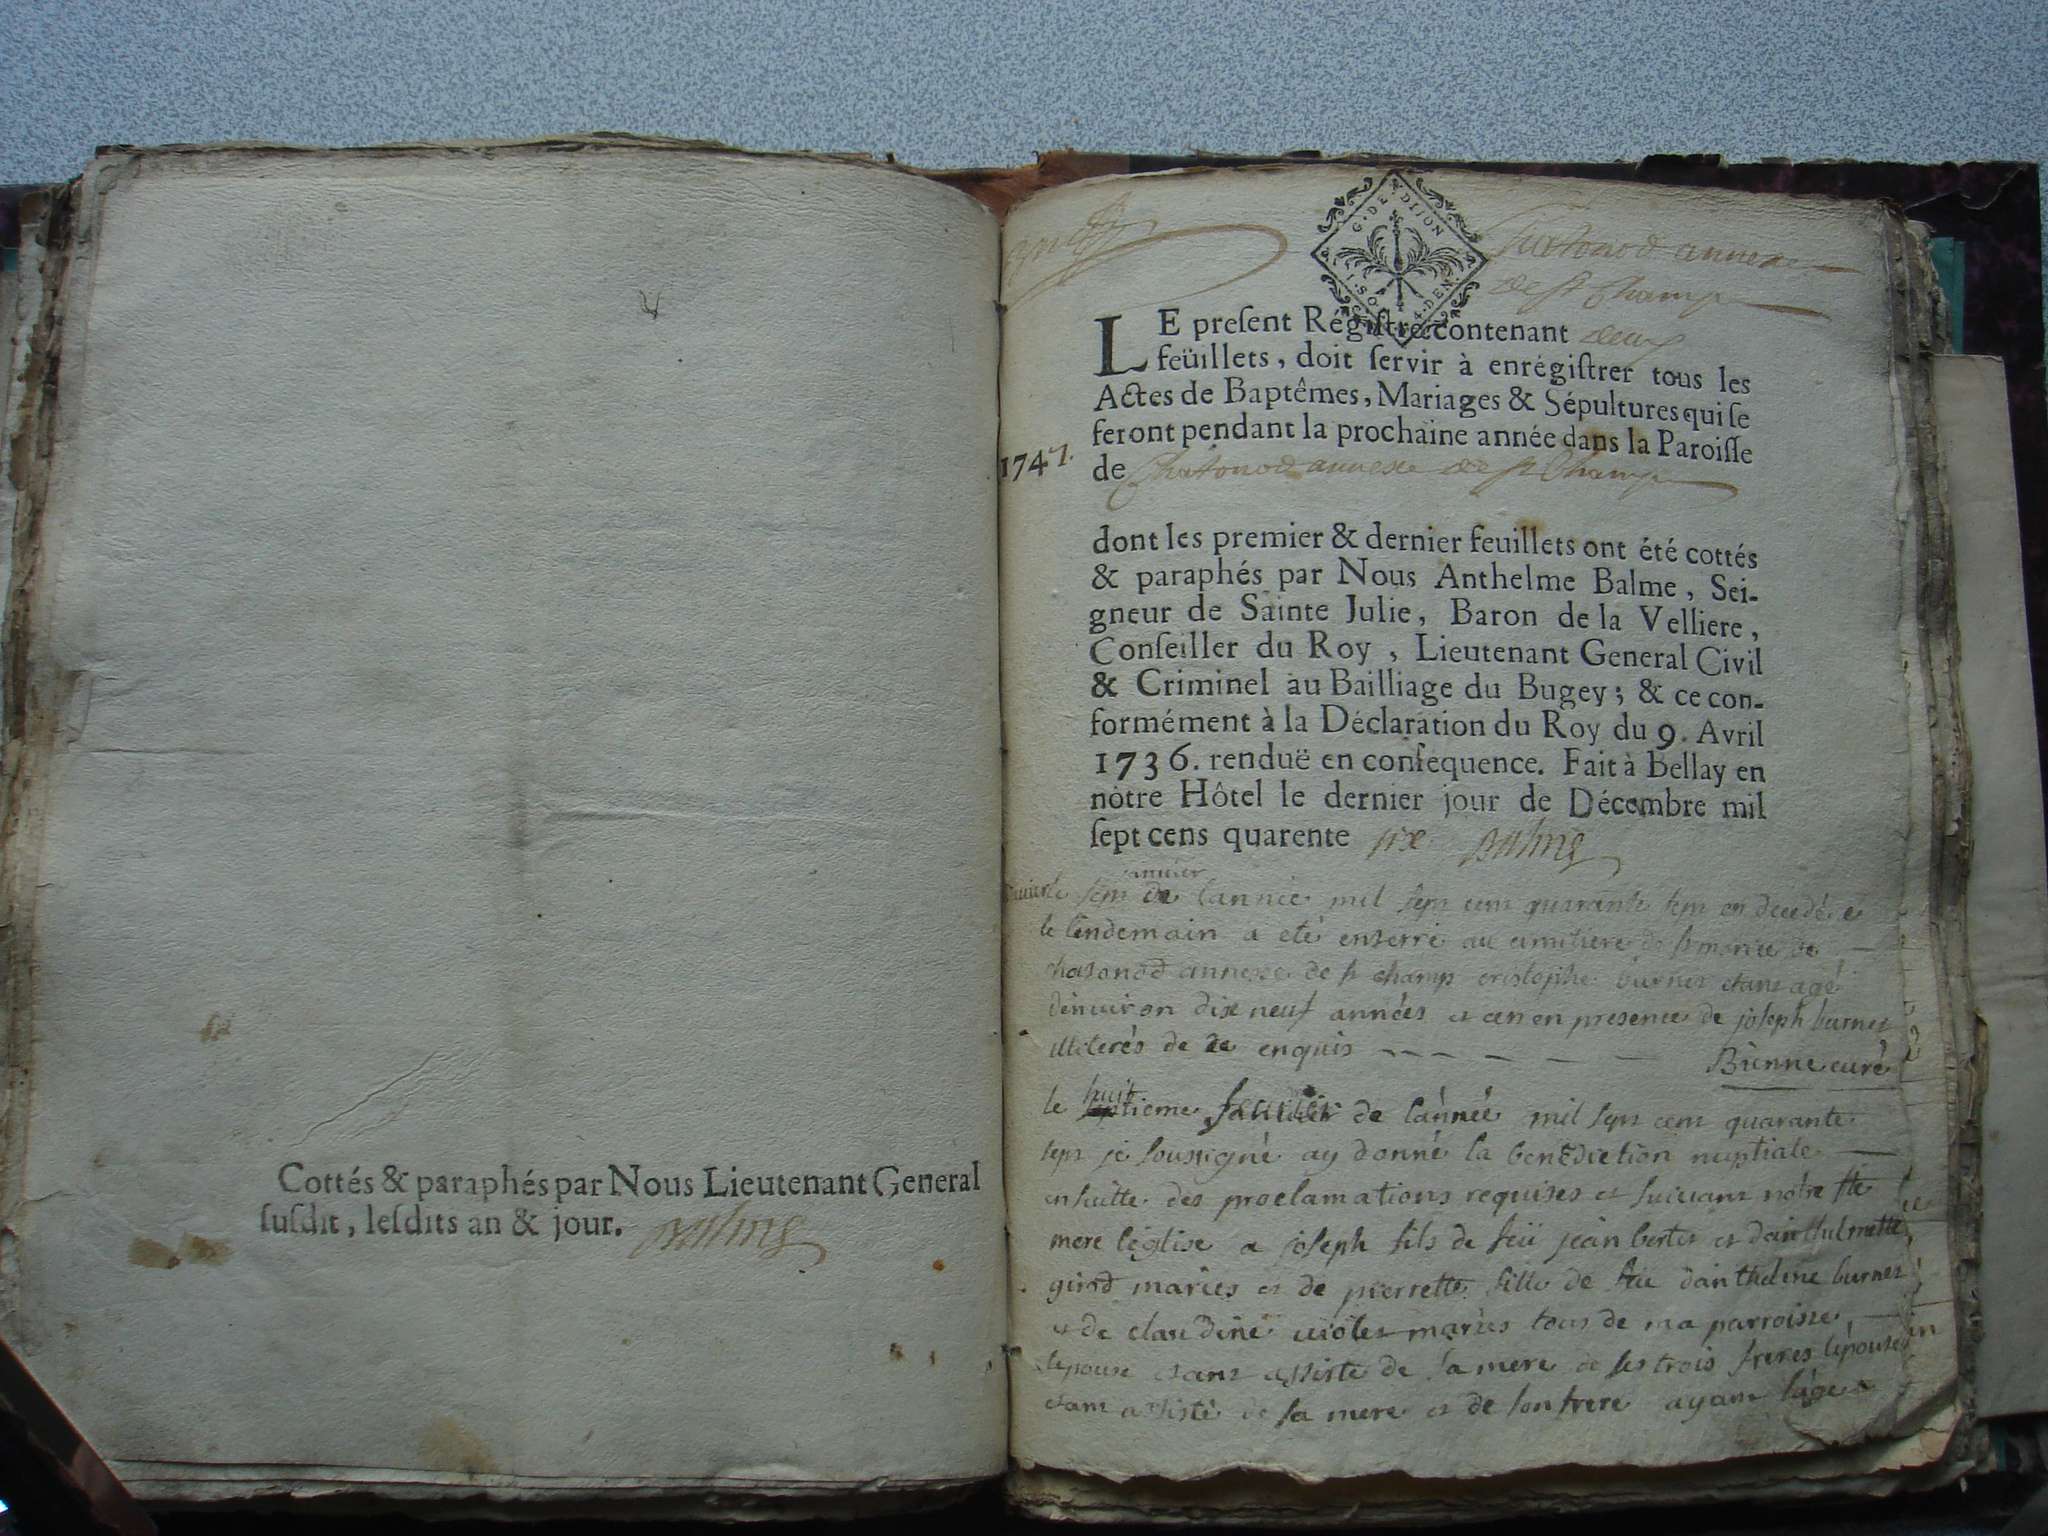 Cottés & paraphés par Nous Lieutenant General
susdit, lesdits an & jour. Balme
G. DE DIJON
Chatonod annexe
de st Champ
LE present Régistre contenant deux
feüillets, doit servir à enrégistrer tous les
Actes de Baptêmes, Mariages & Sépultures qui se
feront pendant la prochaine année dans la Paroisse
1747.
de Chatonod annexe de st Champ
dont les premier & dernier feuillets ont été cottés
& paraphés par Nous Anthelme Balme, Sei-
gneur de Sainte Julie, Baron de la Velliere,
Conseiller du Roy, Lieutenant General Civil
& Criminel au Bailliage du Bugey; & ce con-
formément à la Déclaration du Roy du 9. Avril
1736. renduë en consequence. Fait à Bellay en
nôtre Hôtel le dernier jour de Décembre mil
sept cens quarente six Balme
de lannée mil sept cent quarante sept est decedé e
le lendemain a eté enterré au cimitiere de st maurice de
chatonod annexe de st champ cristophe burnet etant agé
denuiron dixe neuf années et ce en presence de joseph burnet
illiterés de enquis Bienne curé
le huitieme januier de l'année mil sept cent quarante
sept je soussigné ay donné la benediction nuptiale
ensuitte des proclamations requises et suiuant notre ste
mere l'église a joseph fils de feü jean bertet et danthelmette
girod mariés et de pierrette fille de feu danthelme burnet
et de claudine uiolet mariés tous de ma parroisse,
lepoux etant assisté de sa mere de ses trois freres lepouse
etant assisté de sa mere et de son frere ayant lage